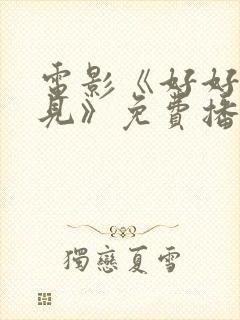 電影《好好
見》免費播
獨戀夏雪